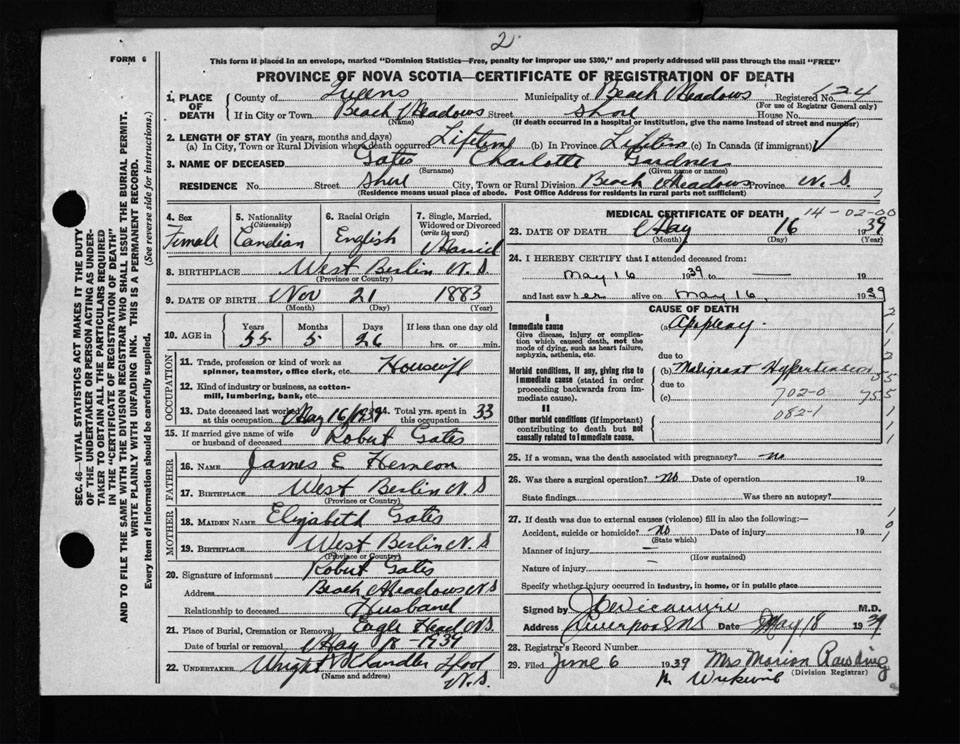 2
FORM 6
This form is placed in an envelope, marked "Dominion Statistics—Free, penalty for improper use $300," and properly addressed will pass through the mail "FREE"
PROVINCE OF NOVA SCOTIA—CERTIFICATE OF REGISTRATION OF DEATH
1. PLACE OF DEATH
County of Queens Municipality of Beach Meadows Registered No. 24
(For use of Registrar General only)
If in City or Town Beach Meadows Street Shore House No.
(Name) (If death occurred in a hospital or institution, give the name instead of street and number)
2. LENGTH OF STAY (in years, months and days)
(a) In City, Town or Rural Division where death occurred Lifetime (b) In Province Lifetime (c) In Canada (if immigrant)
3. NAME OF DECEASED Gates Charlotte Gardner
(Surname) (Given name or names)
RESIDENCE No. Street Shore City, Town or Rural Division Beach Meadows Province N.S
(Residence means usual place of abode. Post Office Address for residents in rural parts not sufficient)
4. Sex Female
5. Nationality (Citizenship) Candian
6. Racial Origin English
7. Single, Married, Widowed or Divorced (write the word) Married
8. BIRTHPLACE West Berlin N.S
(Province or Country)
9. DATE OF BIRTH Nov 21 1883
(Month) (Day) (Year)
10. AGE in Years 55 Months 5 Days 26 If less than one day old hrs. or min.
OCCUPATION
11. Trade, profession or kind of work as spinner, teamster, office clerk, etc. Housewife
12. Kind of industry or business, as cotton-mill, lumbering, bank, etc.
13. Date deceased last worked at this occupation May 16/1939
14. Total yrs. spent in this occupation 33
15. If married give name of wife or husband of deceased Robert Gates
FATHER
16. NAME James E Herneon
17. BIRTHPLACE West Berlin N.S
(Province or Country)
MOTHER
18. MAIDEN NAME Elizabeth Gates
19. BIRTHPLACE West Berlin N S
(Province or Country)
20. Signature of informant Robert Gates
Address Beach Meadows N.S
Relationship to deceased Husband
21. Place of Burial, Cremation or Removal Eagle Head N.S
Date of burial or removal May 18-1939
22. UNDERTAKER Wright Chandler Lpool N.S.
(Name and address)
MEDICAL CERTIFICATE OF DEATH 14-02-00
23. DATE OF DEATH May 16 1939
(Month) (Day) (Year)
24. I HEREBY CERTIFY that I attended deceased from:
May 16 1939 to — 19
and last saw her alive on May 16, 1939
CAUSE OF DEATH
I
Immediate cause
Give disease, injury or complication which caused death, not the mode of dying, such as heart failure, asphyxia, asthenia, etc.
(a) Apoplexy.
due to
Morbid conditions, if any, giving rise to immediate cause (stated in order proceeding backwards from immediate cause).
(b) Malignant Hypertension
due to
(c) 702-0
082-1
755
II
Other morbid conditions (if important) contributing to death but not causally related to immediate cause.
25. If a woman, was the death associated with pregnancy? no
26. Was there a surgical operation? no Date of operation 19
State findings Was there an autopsy?
27. If death was due to external causes (violence) fill in also the following:—
Accident, suicide or homicide? no Date of injury 19
(State which)
Manner of injury —
(How sustained)
Nature of injury —
Specify whether injury occurred in industry, in home, or in public place
Signed by M.D.
Address Liverpool NS Date May 18 1939
28. Registrar's Record Number
29. Filed June 6 1939 Mrs Marion Rawding
(Division Registrar)
SEC. 46—VITAL STATISTICS ACT MAKES IT THE DUTY
OF THE UNDERTAKER OR PERSON ACTING AS UNDER-
TAKER TO OBTAIN ALL THE PARTICULARS REQUIRED
IN THE "CERTIFICATE OF REGISTRATION OF DEATH"
AND TO FILE THE SAME WITH THE DIVISION REGISTRAR WHO SHALL ISSUE THE BURIAL PERMIT.
WRITE PLAINLY WITH UNFADING INK. THIS IS A PERMANENT RECORD.
Every item of information should be carefully supplied. (See reverse side for instructions.)